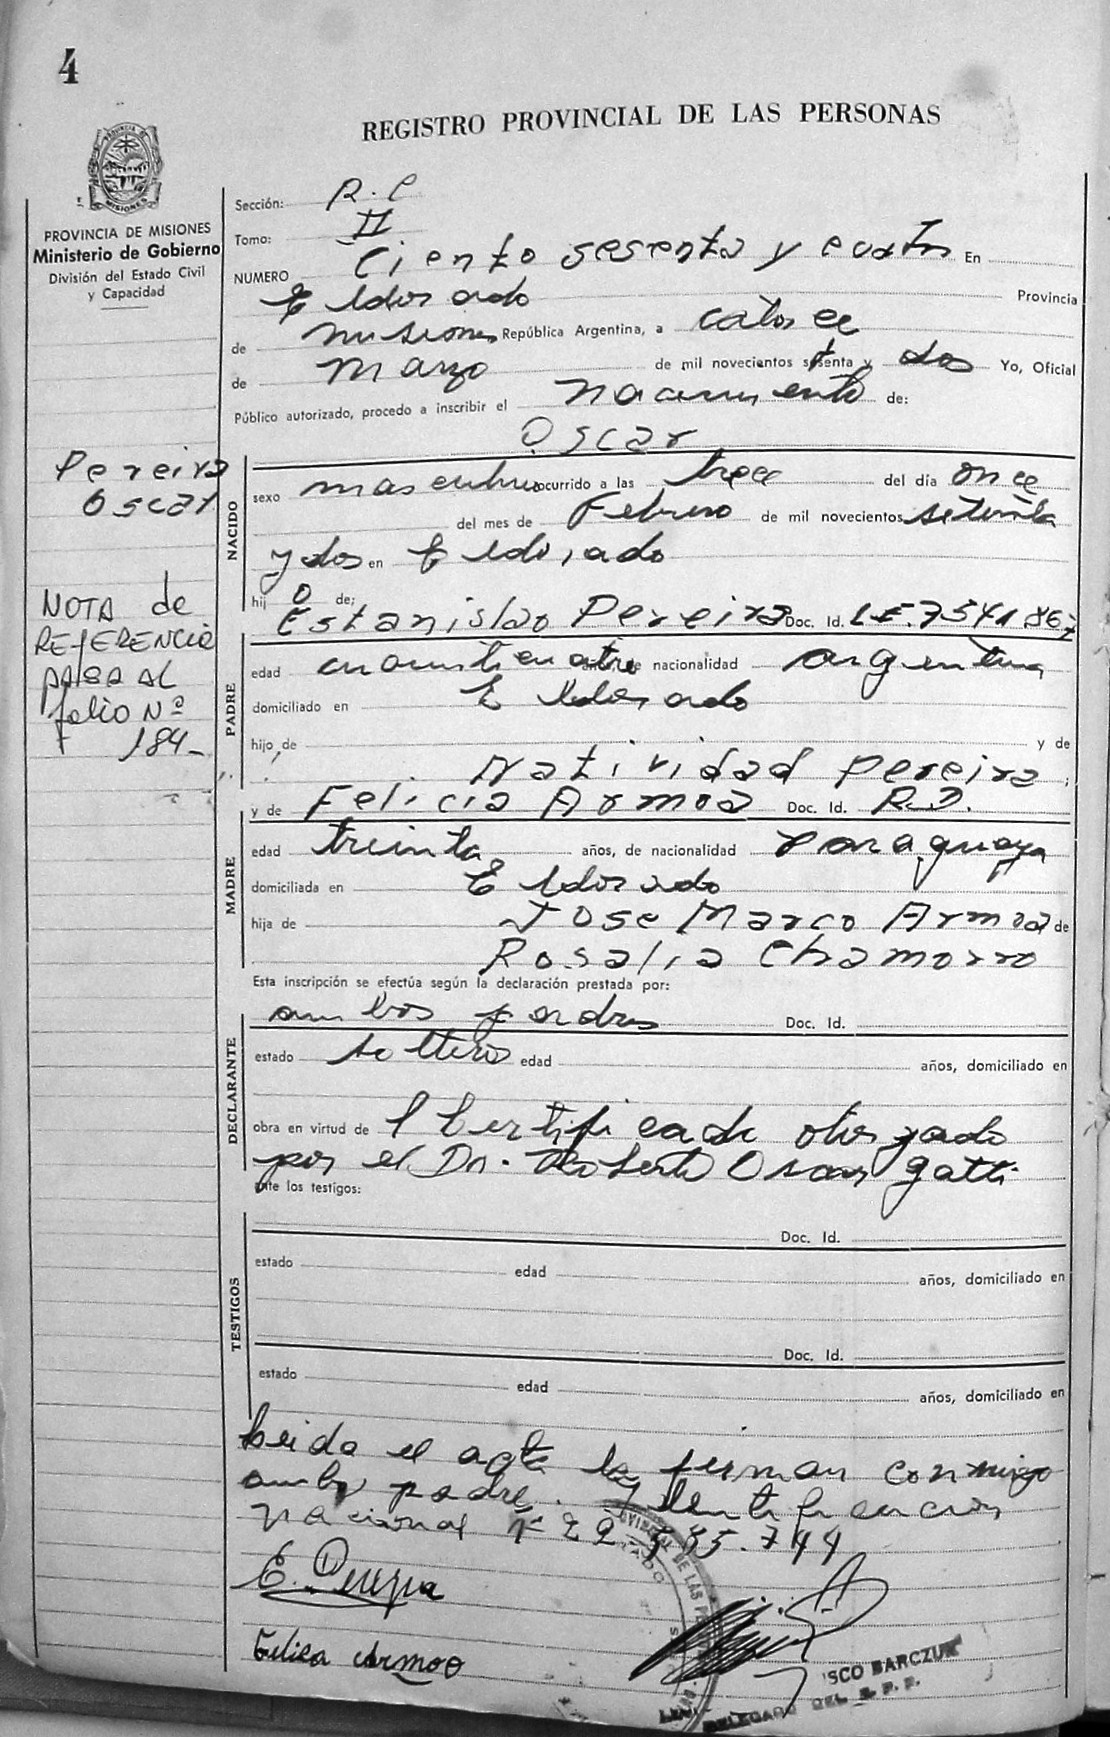 4
REGISTRO PROVINCIAL DE LAS PERSONAS
PROVINCIA DE MISIONES
Ministerio de Gobierno
División del Estado Civil
y Capacidad
Sección: R. C
Tomo: II
NUMERO Ciento sesenta y cuatro En
Eldorado Provincia
de misiones República Argentina, a catorce
de marzo de mil novecientos setenta y dos Yo, Oficial
Público autorizado, procedo a inscribir el nacimiento de:
Oscar
Pereira
Oscar
NOTA de
REFERENCIA
PASA AL
folio Nº
184-
NACIDO
sexo masculino ocurrido a las trece del día once
del mes de Febrero de mil novecientos setenta
y dos en Eldorado
hij o de:
Estanislao Pereira Doc. Id. L.E. 7541.867
PADRE
edad cuarenticuatro nacionalidad argentina
domiciliado en Eldorado
hijo de y de
Natividad Pereira ;
y de Felicia Armoa Doc. Id. R.D.
MADRE
edad treinta años, de nacionalidad paraguaya
domiciliada en Eldorado
hija de Jose Marco Armoa de
Rosalia Chamorro
Esta inscripción se efectúa según la declaración prestada por:
ambos padres Doc. Id.
DECLARANTE
estado solteros edad años, domiciliado en
obra en virtud de Certificado otorgado
por el Dr. Roberto Oscar Gatti
ante los testigos:
TESTIGOS
Doc. Id.
estado edad años, domiciliado en
Doc. Id.
estado edad años, domiciliado en
Leida el acta la firman conmigo
ambos padres. Identificacion
nacional Nº 22.
E. Pereyra
Felisa Armoa
SCO BARCZUK
DELEGADO DEL R. P. P.